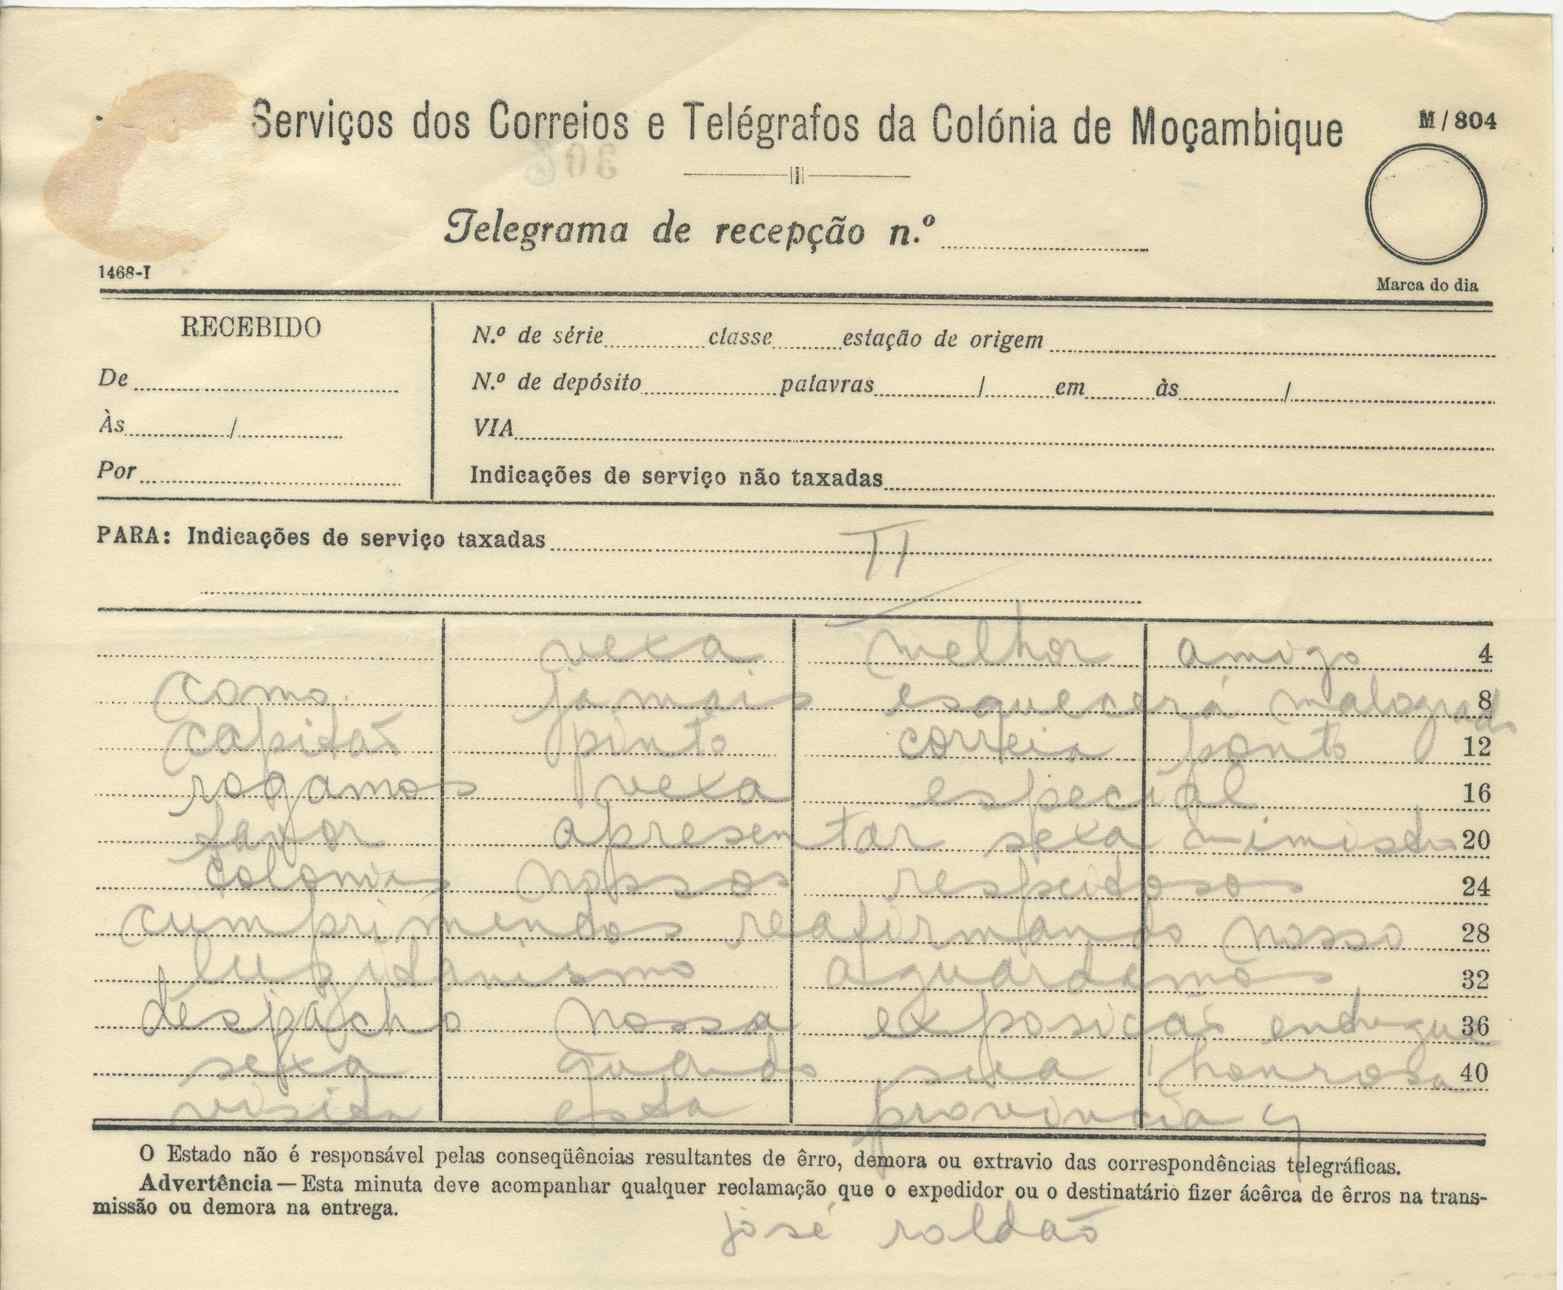 Serviços dos Correios e Telégrafos da Colónia de Moçambique
M/804
Telegrama de recepção n.º
1468-I
Marca do dia
RECEBIDO
De
Às / 
Por
N.º de série classe estação de origem
N.º de depósito palavras / em às /
VIA
Indicações de serviço não taxadas
PARA: Indicações de serviço taxadas
vexa melhor amigo 4
como jamais esquecerá malogrado 8
capitão pinto correia ponto 12
rogamos vexa especial 16
favor apresentar sexa ministro 20
colonias nossos respeitosos 24
cumprimentos reafirmando nosso 28
lusitanismo aguardamos 32
despacho nossa exposição entregue 36
sexa quando sua honrosa 40
visita esta provincia
O Estado não é responsável pelas conseqüências resultantes de êrro, demora ou extravio das correspondências telegráficas.
Advertência — Esta minuta deve acompanhar qualquer reclamação que o expedidor ou o destinatário fizer ácêrca de êrros na trans-
missão ou demora na entrega.
josé roldão